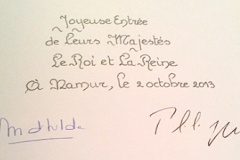 Joyeuse Entrée
de Leurs Majestés
Le Roi et La Reine
À Namur, le 2 octobre 2013
Mathilde